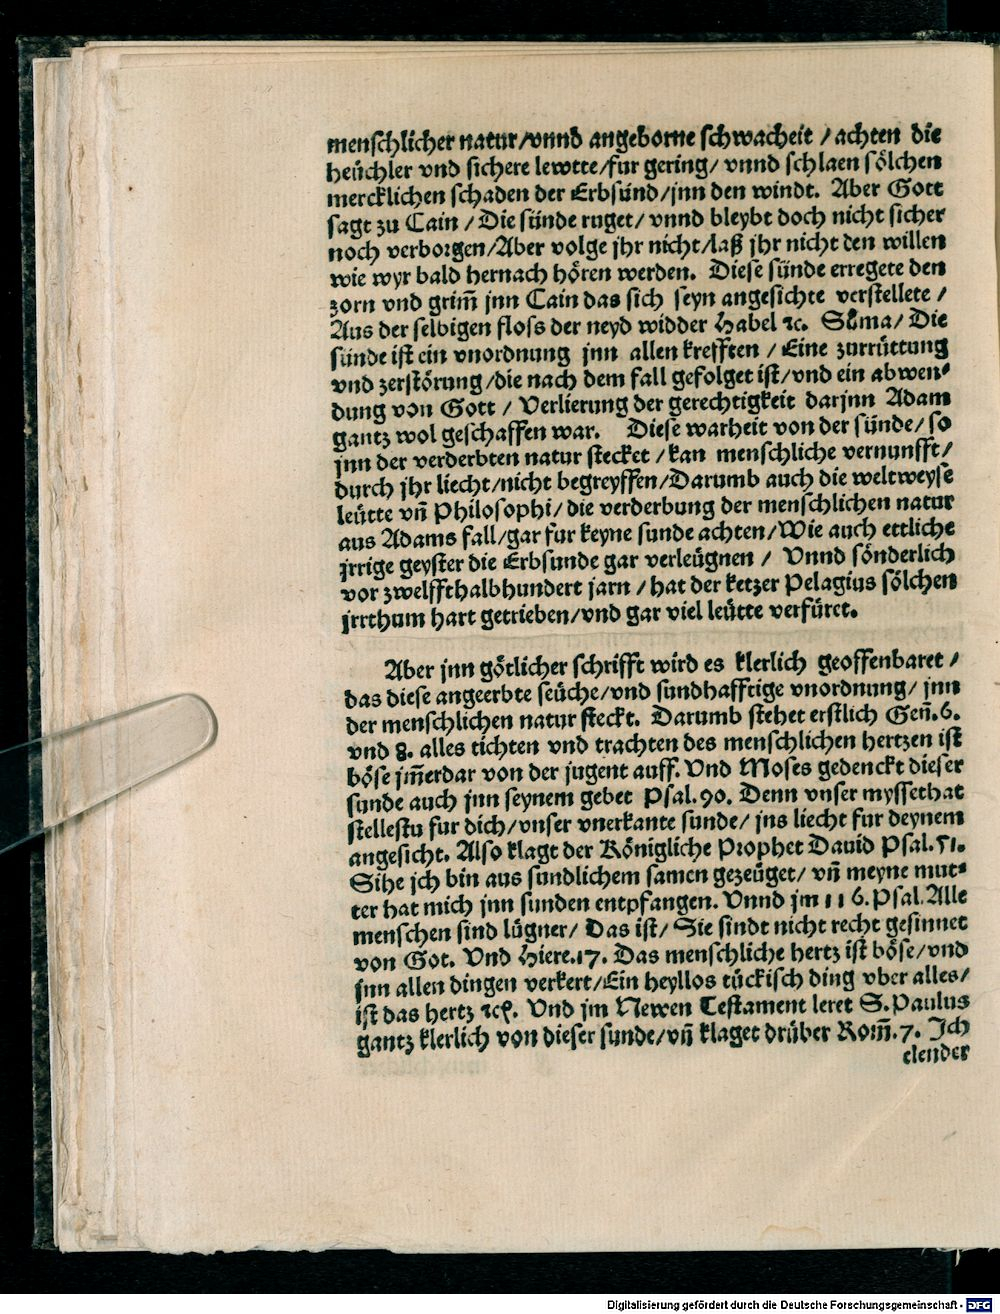 menschlicher natur/vnnd angeborne schwacheit / achten die
heüchler vnd sichere lewtte/fur gering/ vnnd schlaen sölchen
mercklichen schaden der Erbsünd/jnn den windt. Aber Gott
sagt zu Cain / Die sünde ruget/ vnnd bleybt doch nicht sicher
noch verborgen/Aber volge jhr nicht/laß jhr nicht den willen
wie wyr bald hernach hören werden. Diese sünde erregete den
zorn vnd grim̃ jnn Cain das sich seyn angesichte verstellete /
Aus der selbigen floss der neyd widder Habel ꝛc. Sum̃a/ Die
sünde ist ein vnordnung jnn allen krefften / Eine zurrüttung
vnd zerstörung/die nach dem fall gefolget ist/vnd ein abwen⸗
dung von Gott / Verlierung der gerechtigkeit darjnn Adam
gantz wol geschaffen war. Diese warheit von der sünde/ so
jnn der verderbten natur stecket / kan menschliche vernunfft/
durch jhr liecht/nicht begreyffen/Darumb auch die weltweyse
leütte vñ Philosophi/ die verderbung der menschlichen natur
aus Adams fall/gar fur keyne sunde achten/Wie auch ettliche
jrrige geyster die Erbsunde gar verleügnen / Vnnd sönderlich
vor zwelffthalbhundert jarn / hat der ketzer Pelagius sölchen
jrrthum hart getrieben/vnd gar viel leütte verfüret.
Aber jnn götlicher schrifft wird es klerlich geoffenbaret /
das diese angeerbte seüche/vnd sundhafftige vnordnung/ jnn
der menschlichen natur steckt. Darumb stehet erstlich Geñ.6.
vnd 8. alles tichten vnd trachten des menschlichen hertzen ist
böse jm̃erdar von der jugent auff. Vnd Moses gedenckt dieser
sunde auch jnn seynem gebet Psal.90. Denn vnser myssethat
stellestu fur dich/vnser vnerkante sunde/ jns liecht fur deynem
angesicht. Also klagt der Königliche Prophet Dauid Psal.51.
Sihe jch bin aus sundlichem samen gezeüget/ vñ meyne mut⸗
ter hat mich jnn sunden entpfangen. Vnnd jm 116.Psal.Alle
menschen sind lügner/ Das ist/ Sie sindt nicht recht gesinnet
von Got. Vnd Hiere.17. Das menschliche hertz ist böse/vnd
jnn allen dingen verkert/Ein heyllos tückisch ding vber alles/
ist das hertz ꝛc. Vnd jm Newen Testament leret S.Paulus
gantz klerlich von dieser sunde/vñ klaget drüber Rom̃.7. Jch
elender
Digitalisierung gefördert durch die Deutsche Forschungsgemeinschaft - DFG